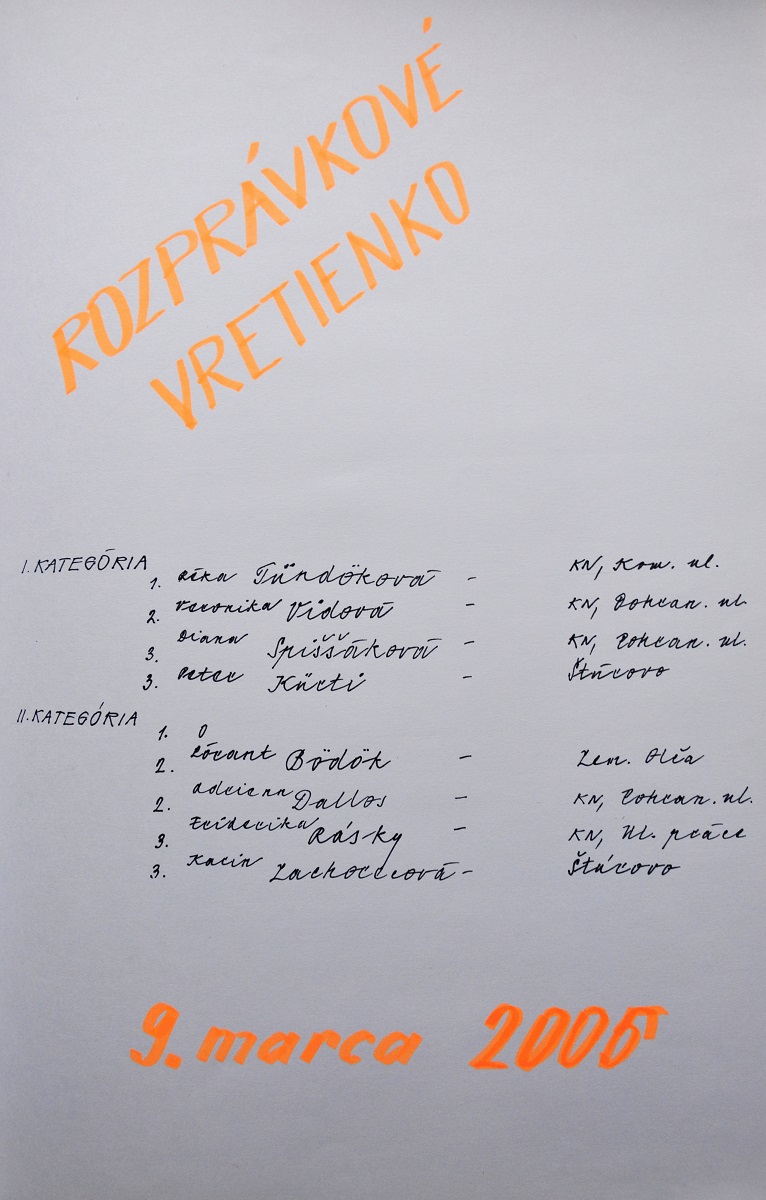 ROZPRÁVKOVÉ
VRETIENKO
I. KATEGÓRIA
1. Réka Tündöková - KN, Kom. ul.
2. Veronika Vidová - KN, Pohran. ul.
3. Diana Spiššáková - KN, Pohran. ul.
3. Peter Kürti - Štúrovo
II. KATEGÓRIA
1. 0
2. Lórant Bödök - Zem. Olča
2. Adriena Dallos - KN, Pohran. ul.
3. Friderika Rásky - KN, Ul. práce
3. Karin Zachorcová - Štúrovo
9. marca 2005